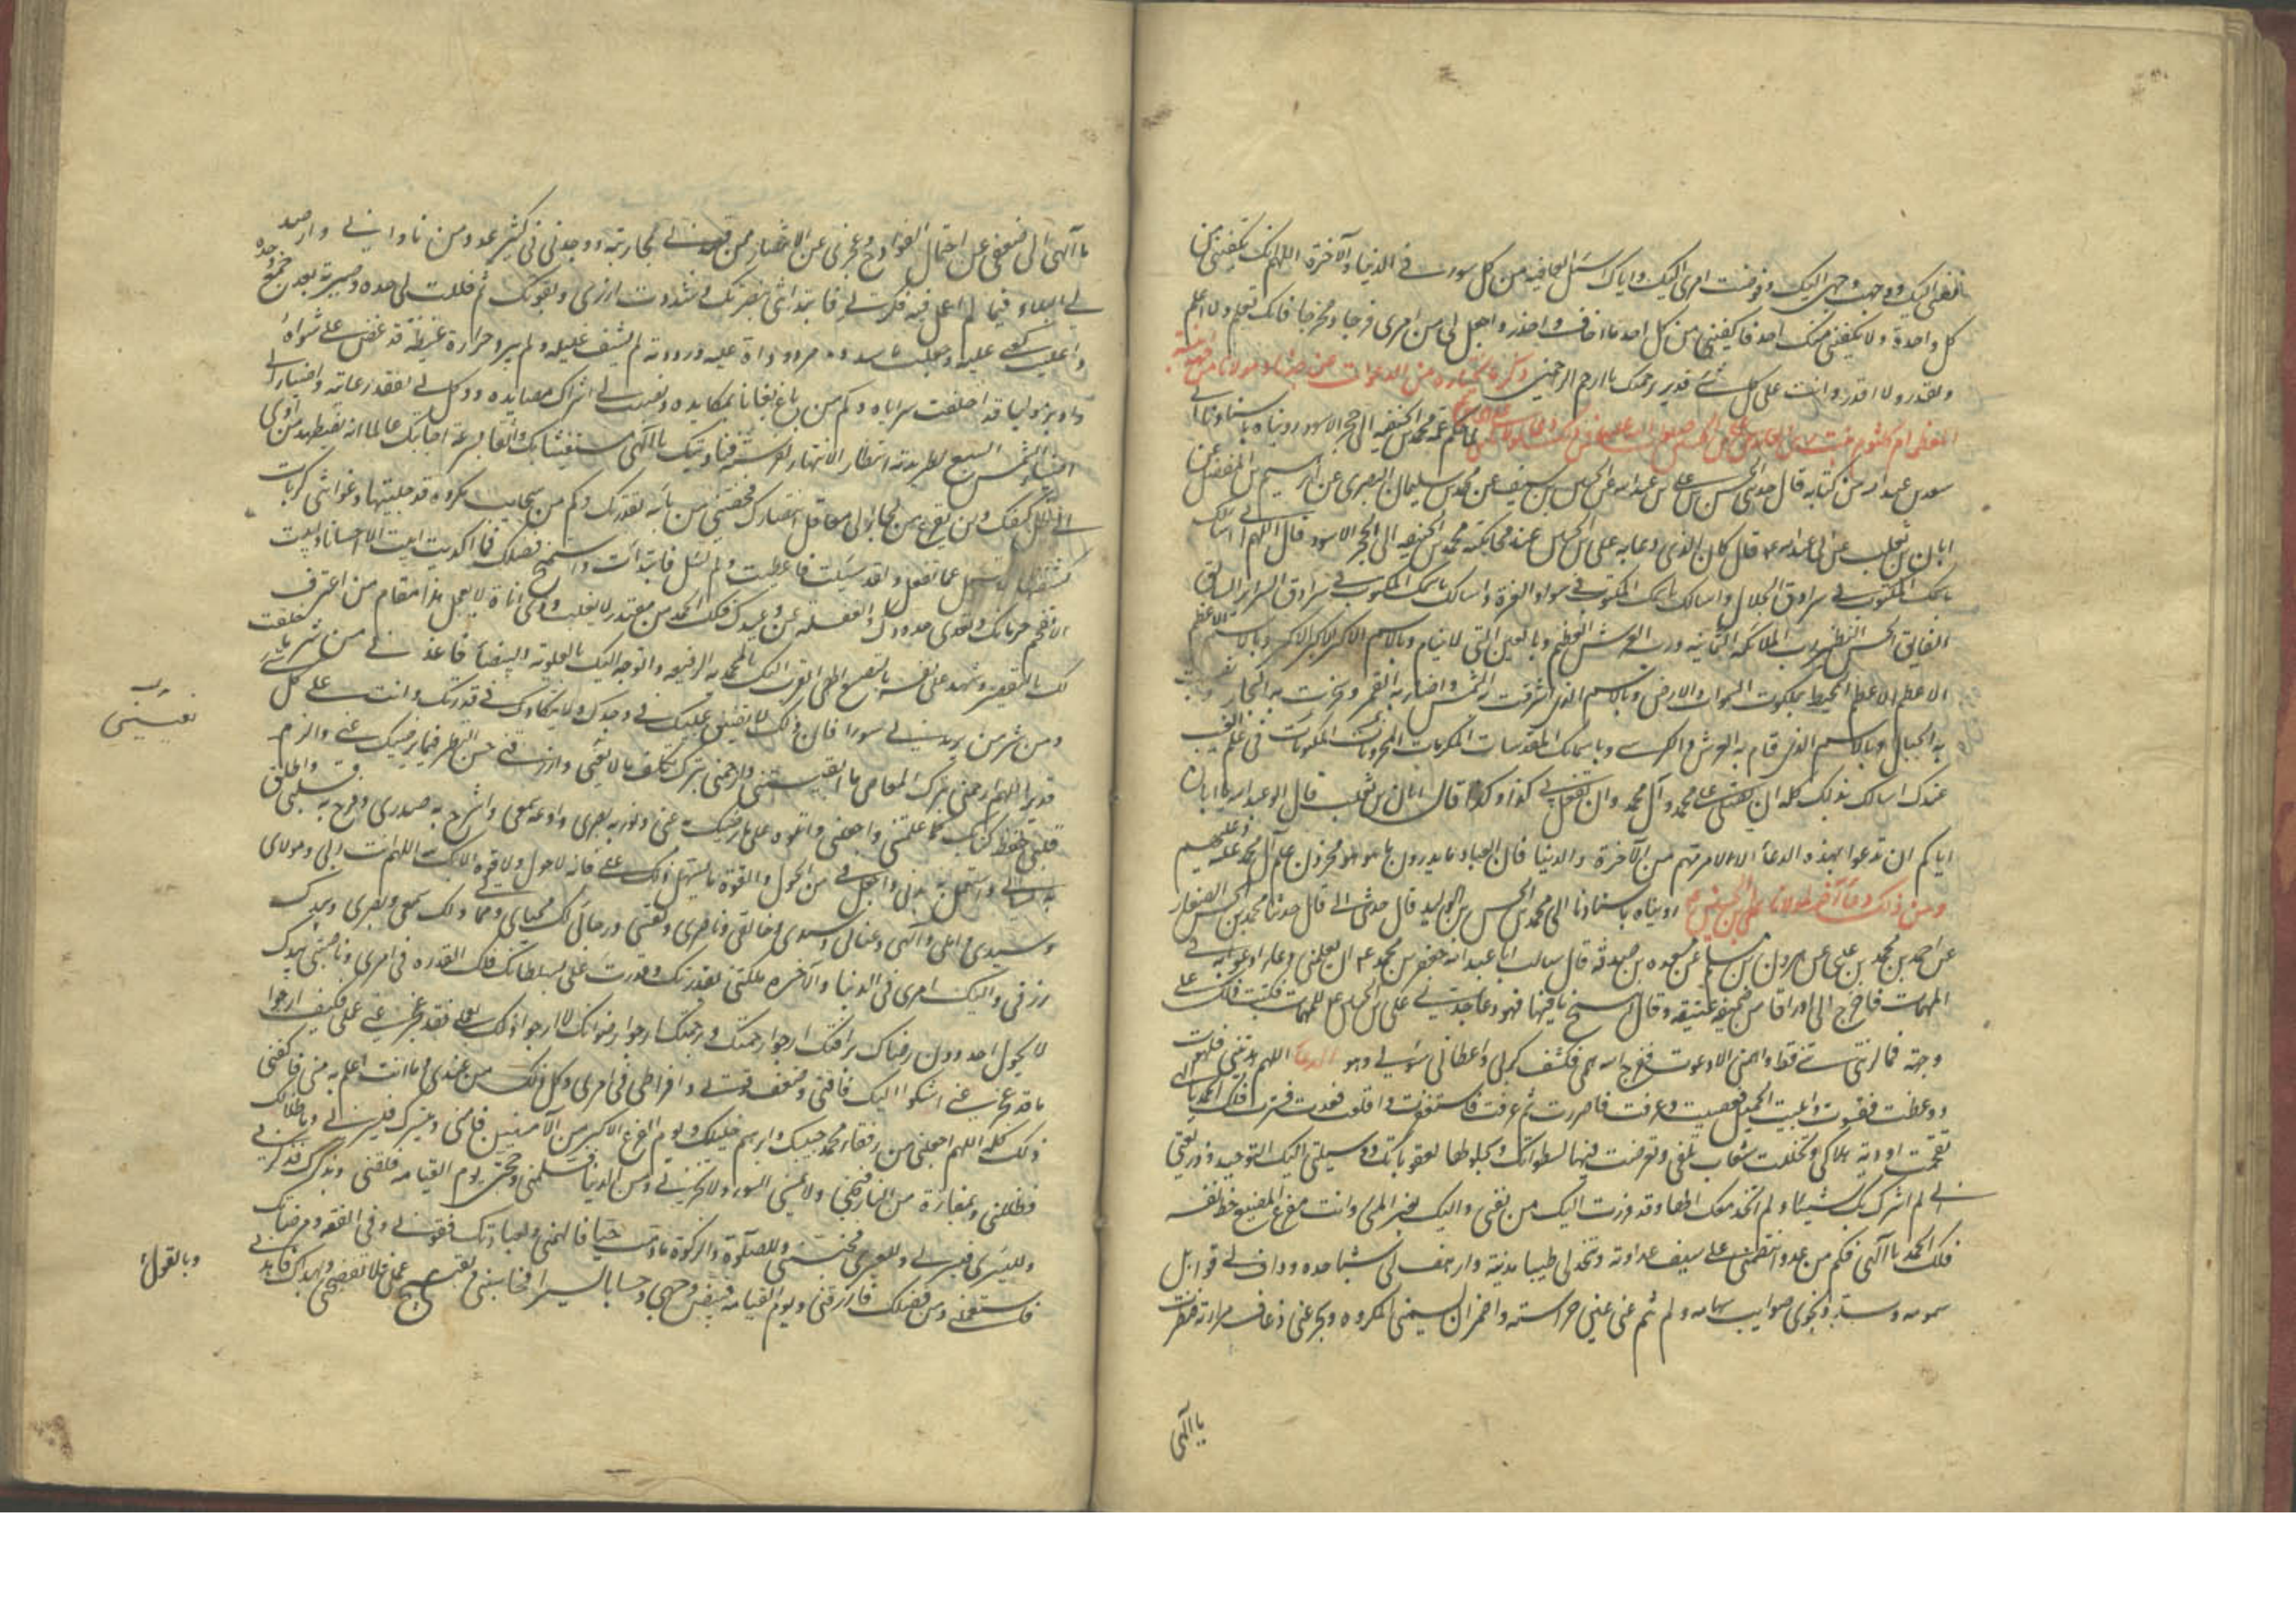 نفسي اليك ووجهت وجهي اليك وفوضت امري اليك واياك اسئل العافية من كل سوء في الدنيا والآخرة اللهم انك تكفيني من
كل واحدة ولا يكفيني منك احد فاكفني من كل احد ما اخاف واحذر واجعل لي من امري فرجا ومخرجا فانك تعلم ولا اعلم
وتقدر ولا اقدر وانت على كل شيء قدير برحمتك يا ارحم الراحمين ذكر ما نختاره من الدعوات عن
لما حاكم عمه محمد بن الحنفية الى حجر الاسود رويناه باسنادنا الى
سعد بن عبد الله من كتابه قال حدثني الحسن بن علي بن عبد الله عن الحسين بن سيف عن محمد بن سليمان البصري عن ابراهيم بن المفضل عن
ابان بن تغلب عن ابي عبد الله ع قال كان الذي دعا به علي بن الحسين عند محاكمته محمد بن الحنفية الى الحجر الاسود قال اللهم اني اسالك
باسمك المكتوب في سرادق الجلال واسالك باسمك المكتوب في سرادق العزة واسالك باسمك المكتوب في سرادق السرائر السابق
الفايق الحسن النضير رب الملائكة الثمانية ورب العرش العظيم وبالعين التي لا تنام وبالاسم الاكبر الاكبر الاكبر وبالاسم الاعظم
الاعظم الاعظم المحيط بملكوت السموات والارض وبالاسم الذي اشرقت به الشمس واضاء به القمر وسجرت به البحار ونصبت
به الجبال وبالاسم الذي قام به العرش والكرسي وباسمائك المقدسات المكرمات المخزونات المكنونات في علم الغيب
عندك اسالك بذلك كله ان تصلي على محمد وآل محمد وان تفعل بي كذا وكذا قال ابان بن تغلب قال ابو عبد الله يا ابان
اياكم ان تدعوا بهذه الدعاء الا لامر مهم من الآخرة والدنيا فان العباد ما يدرون ما هو هو مخزون علم آل محمد عليه وعليهم
ومن ذلك دعاء آخر لمولانا علي بن الحسين ع رويناه باسنادنا الى محمد بن الحسن بن الوليد قال حدثني ابي قال حدثنا محمد بن الحسن الصفار
عن احمد بن محمد بن عيسى عن هرون بن مسلم عن مسعدة بن صدقة قال سالت ابا عبد الله جعفر بن محمد ع ان يعلمني دعاء ادعو به في
المهمات فاخرج الي اوراقا من صحيفة عتيقة وقال انتسخ ما فيها فهو دعاء جدي علي بن الحسين ع للمهمات فكتبت ذلك على
وجهه فما كربني شيء قط واهمني الا دعوت ففرج الله همي وكشف كربي واعطاني سؤلي وهو الدعاء اللهم هديتني فلهوت
ووعظت فقسوت وابليت الجميل فعصيت وعرفت فاصررت ثم عرفت فاستغفرت فاقلت فعدت فسترت فلك الحمد يا الهي
تقحمت اودية هلاكي وتخللت شعاب تلفي وتعرضت فيها لسطواتك وبحلولها لعقوباتك ووسيلتي اليك التوحيد وذريعتي
اني لم اشرك بك شيئا ولم اتخذ معك الها وقد فررت اليك من نفسي واليك يفر المسيء وانت مفزع المضيع حظ نفسه
فلك الحمد يا الهي فكم من عدو انتضى علي سيف عداوته وشحذ لي ظبة مديته وارهف لي شبا حده وداف لي قواتل
سمومه وسدد نحوي صوايب سهامه ولم تنم عني عين حراسته واضمر ان يسيمني المكروه ويجرعني ذعاف مرارته فنظرت
يا الهي
يا الهي الى ضعفي عن احتمال الفوادح وعجزي عن الانتصار ممن قصدني بمحاربته ووحدتي في كثير عدد من ناواني وارصد
لي البلاء فيما لم اعمل فيه فكري فابتدأتني بنصرتك وشددت ازري بقوتك ثم فللت لي حده وصيرته بعد جمع وحده
واعليت كعبي عليه وجعلت ما سدده مردودا عليه ورددته لم يشف غليله ولم يبرد حرارة غيظه قد عض على شواه
وادبر موليا قد اخلفت سراياه وكم من باغ بغاني بمكايده ونصب لي اشراك مصايده ووكل بي تفقد رعايته واضبأ الي
اضباء السبع لطريدته انتظار الانتهاز لفرصته فناديتك يا الهي مستغيثا بك واثقا بسرعة اجابتك عالما انه لن يضطهد من اوى
الى ظل كنفك ولن يفزع من لجأ الى معاقل انتصارك فحصنتني من بأسه بقدرتك وكم من سحايب مكروه قد جليتها وغواشي كربات
كشفتها لا تسئل عما تفعل ولقد سئلت فاعطيت ولم تسئل فابتدأت واستميح فضلك فما اكديت ابيت الا احسانا وابيت
الا تقحم حرماتك وتعدي حدودك والغفلة عن وعيدك فلك الحمد من مقتدر لا يغلب وذي اناة لا يعجل هذا مقام من اعترف
لك بالتقصير وشهد على نفسه بالتضييع اللهم اني اتقرب اليك بالمحمدية الرفيعة واتوجه اليك بالعلوية البيضاء فاعذني من شر ما خلقت
ومن شر من يريد بي سوءا فان ذلك لا يضيق عليك في وجدك ولا يتكاءدك في قدرتك وانت على كل
قدير اللهم ارحمني بترك المعاصي ما ابقيتني وارحمني بترك تكلف ما لا يعنيني وارزقني حسن النظر فيما يرضيك عني والزم
قلبي حفظ كتابك كما علمتني واجعلني اتلوه على ما يرضيك به عني ونور به بصري واوعه سمعي واشرح به صدري وفرج به قلبي واطلق
به لساني واستعمل به بدني واجعل في من الحول والقوة ما يسهل ذلك علي فانه لا حول ولا قوة الا بك اللهم انت ربي ومولاي
وسيدي واملي والهي وغياثي وسندي وخالقي وناصري وثقتي ورجائي لك محياي ومماتي ولك سمعي وبصري وبيدك
رزقي واليك امري في الدنيا والآخرة ملكتني بقدرتك وقدرت علي بسلطانك فلك القدرة في امري وناصيتي بيدك
لا يحول احد دون رضاك برافتك ارجوا رحمتك وبرحمتك ارجوا رضوانك لا ارجوا ذلك بعملي فقد عجز عني عملي فكيف ارجوا
ما قد عجز عني اشكوا اليك فاقتي وضعف قوتي وافراطي في امري وكل ذلك من عندي وما انت اعلم به مني فاكفني
ذلك كله اللهم اجعلني من رفقاء محمد حبيبك وابرهيم خليلك ويوم الفزع الاكبر من الآمنين فآمني وبيسرك فيسر لي وباظلالك
فظللني وبمفازة من النار فنجني ولا تمسني السوء ولا تخزني ومن الدنيا فسلمني وحجتي يوم القيامة فلقني وبذكرك فذكرني
ولليسرى فيسرني وللعسرى فجنبني وللصلوة والزكوة ما دمت حيا فالهمني ولعبادتك فقوني وفي الفقه ومرضاتك
فاستعملني ومن فضلك فارزقني ويوم القيامة فبيض وجهي وحسابا يسيرا فحاسبني وبقبيح عملي فلا تفضحني وبهداك فاهدني
وبالقول